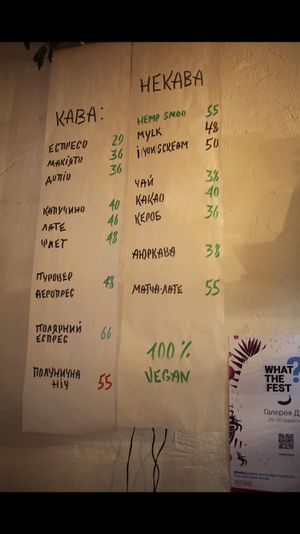 КАВА:
ЕСПРЕСО 29
МАКІЯТО 36
ДОПІО 36
КАПУЧИНО 40
ЛАТЕ 46
ФЛЕТ 48
ПУРОВЕР 48
АЕРОПРЕС
ПОЛЯРНИЙ
ЕСПРЕС 66
ПОЛУНИЧНА
НІЧ 55
НЕКАВА
HEMP SMOO 55
MYLK 48
ЧАЙ 38
КАКАО 40
КЕРОБ 36
АЮРКАВА 38
МАТЧА-ЛАТЕ 55
100%
VEGAN
WHAT
THE
FEST
?
Галерея Д